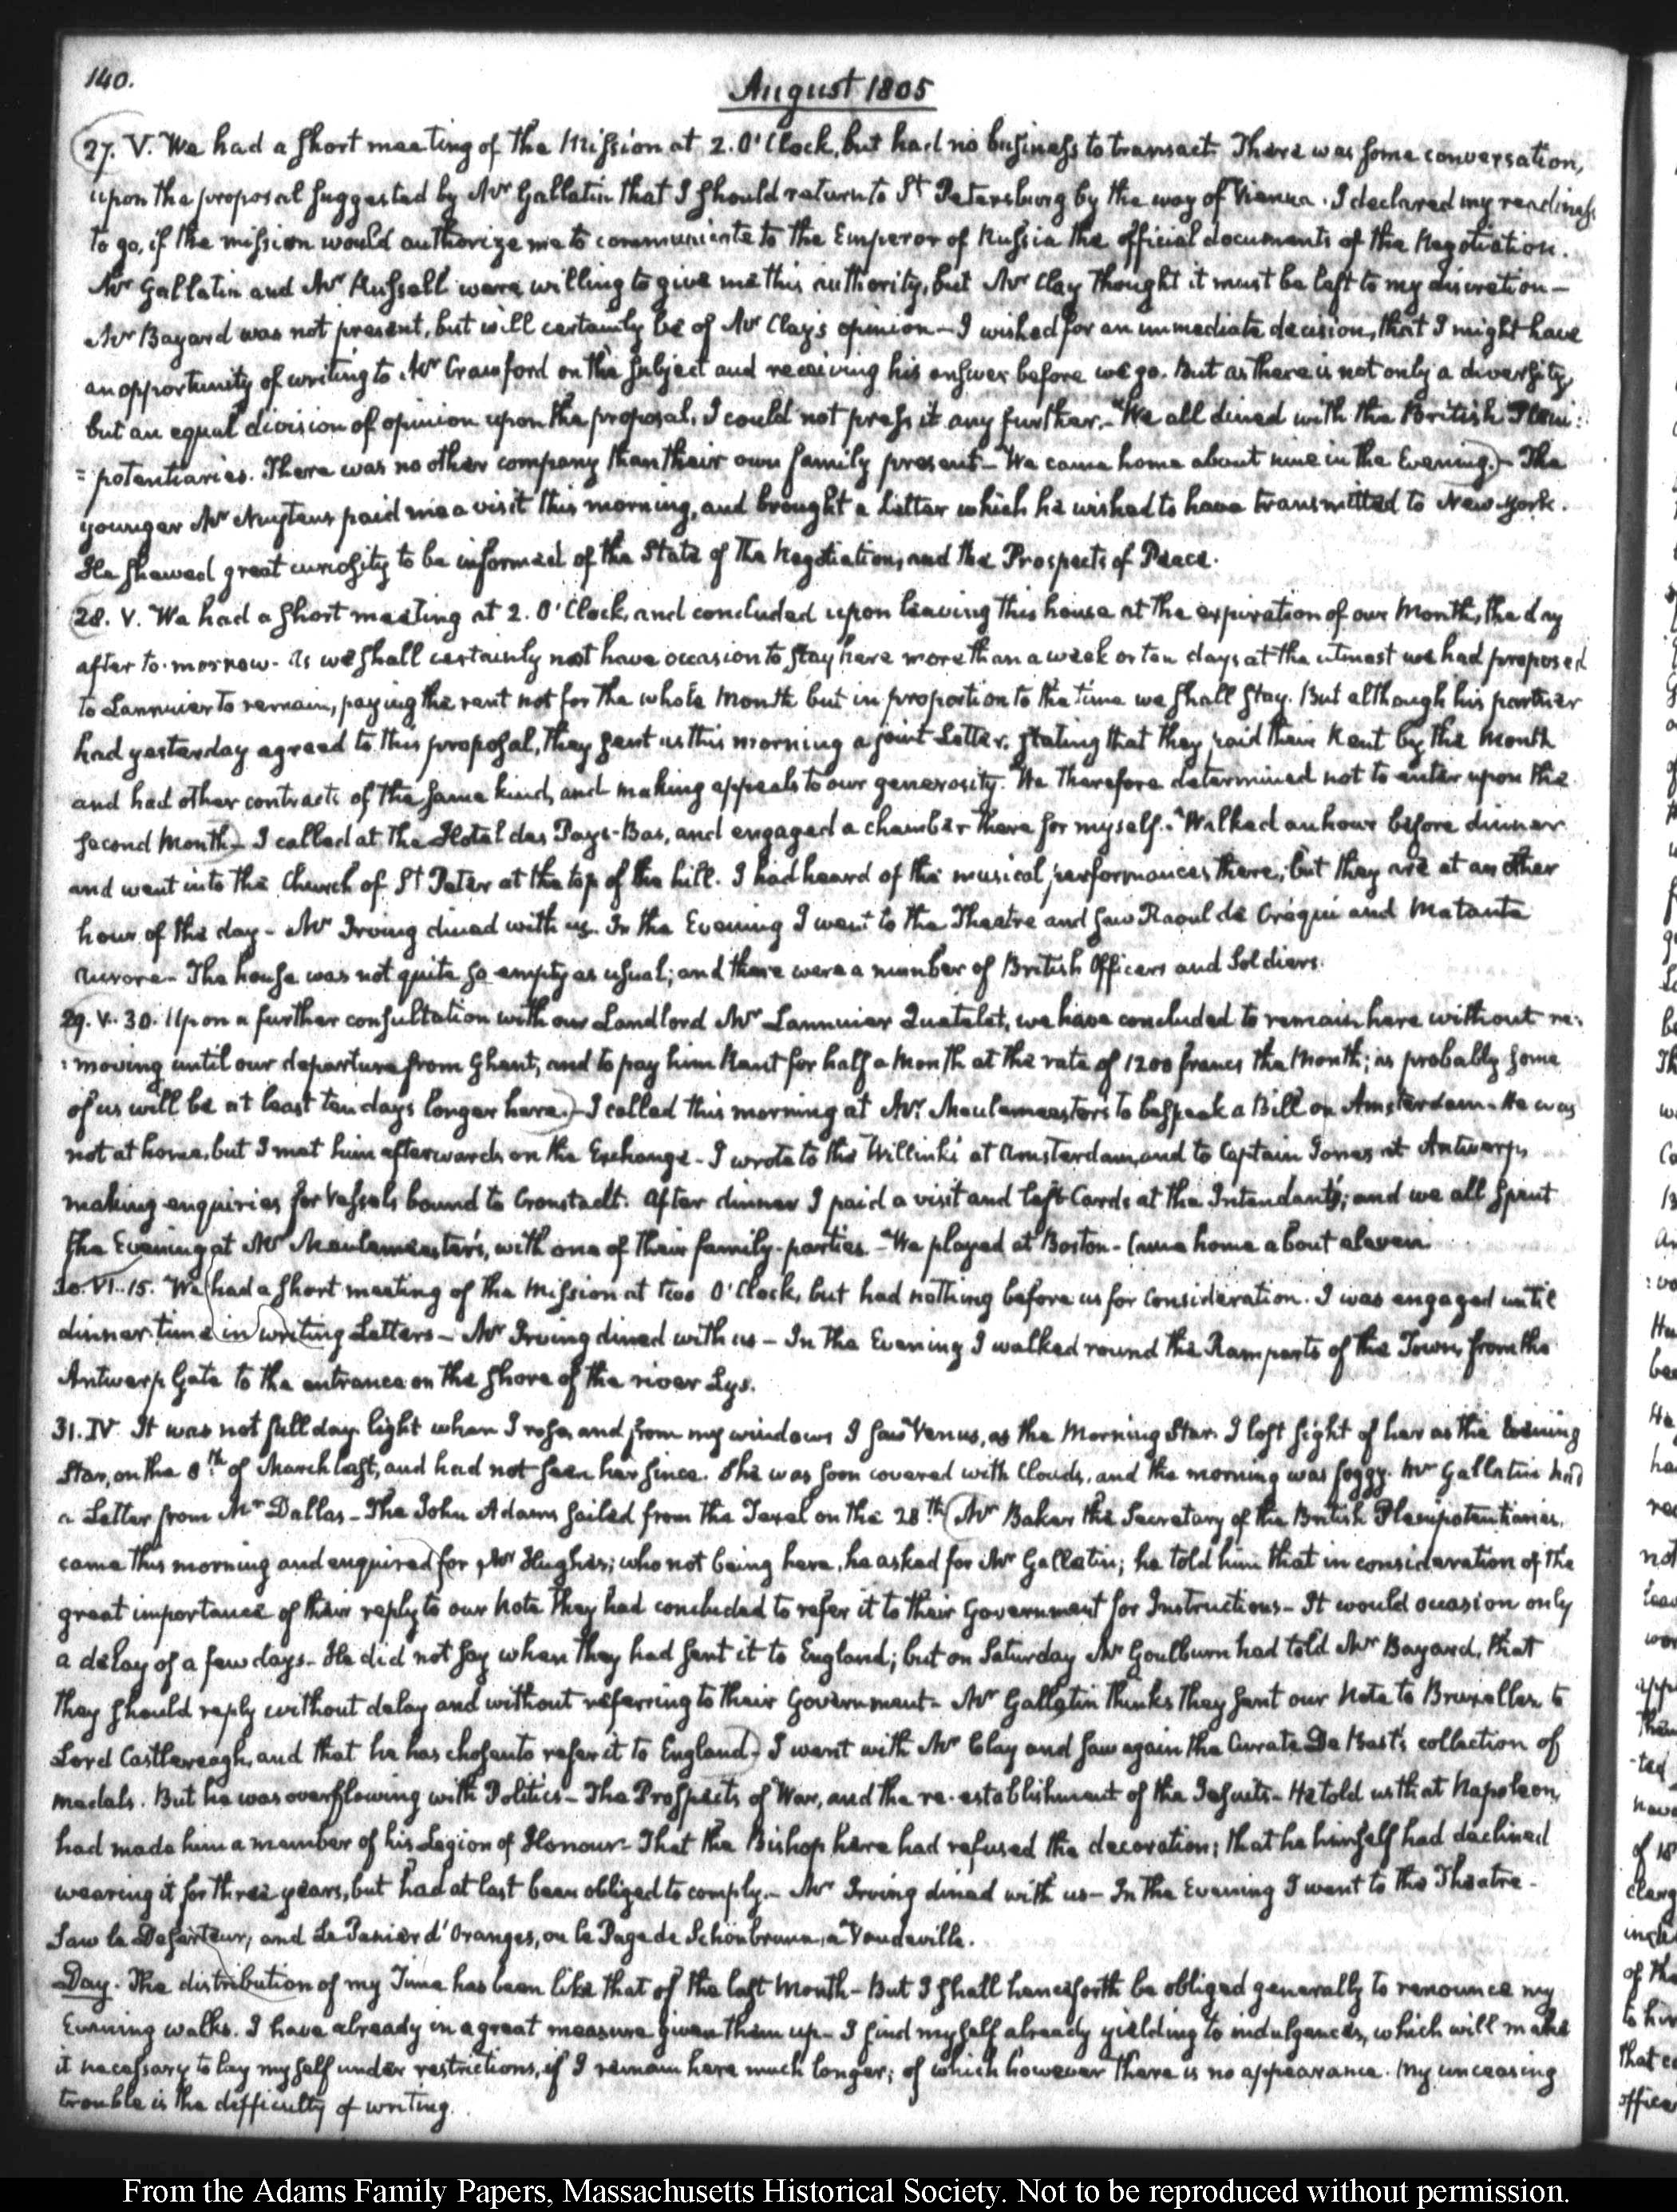 140.
August 1805
27. V. We had a short meeting of the Mission at 2. O'Clock, but had no business to transact. There was some conversation,
upon the proposal suggested by Mr Gallatin that I should return to St Petersburg by the way of Vienna. I declared my readiness
to go, if the mission would authorize me to communicate to the Emperor of Russia the official documents of the Negotiation.
Mr Gallatin and Mr Russell were willing to give me this authority, but Mr Clay thought it must be left to my discretion—
Mr Bayard was not present, but will certainly be of Mr Clay's opinion—I wished for an immediate decision, that I might have
an opportunity of writing to Mr Crawford on the subject and receiving his answer before we go. But as there is not only a diversity,
but an equal division of opinion upon the proposal, I could not press it any further.—We all dined with the British Pleni:
=potentiaries. There was no other company than their own family present—We came home about nine in the Evening.—The
younger Mr Nuytens paid me a visit this morning, and brought a Letter which he wished to have transmitted to New-York.
He shewed great curiosity to be informed of the State of the Negotiation, and the Prospects of Peace.
28. V. We had a short meeting at 2. O'Clock, and concluded upon leaving this house at the expiration of our Month, the day
after to-morrow. As we shall certainly not have occasion to stay here more than a week or ten days at the utmost we had proposed
to Lannuier to remain, paying the rent not for the whole Month but in proportion to the time we shall stay. But although his partner
had yesterday agreed to this proposal, they sent us this morning a joint Letter, stating that they paid their Rent by the Month
and had other contracts of the same kind, and making appeals to our generosity. We therefore determined not to enter upon the
second Month—I called at the Hotel des Pays-Bas, and engaged a chamber there for myself.—Walked an hour before dinner
and went into the Church of St Peter at the top of the hill. I had heard of the musical performances there; but they are at another
hour of the day—Mr Irving dined with us. In the Evening I went to the Theatre and saw Raoul de Créqui and Matante
Aurore—The house was not quite so empty as usual; and there were a number of British Officers and Soldiers.
29. V. 30. Upon a further consultation with our Landlord Mr Lannuier Quetelet, we have concluded to remain here without re:
:moving until our departure from Ghent, and to pay him Rent for half a Month at the rate of 1200 francs the Month; as probably some
of us will be at least ten days longer here.—I called this morning at Mr Meulemeester's to bespeak a Bill on Amsterdam. He was
not at home, but I met him afterwards on the Exchange—I wrote to the Willinks at Amsterdam, and to Captain Jones at Antwerp,
making enquiries for Vessels bound to Cronstadt. After dinner I paid a visit and left Cards at the Intendant's; and we all spent
the Evening at Mr Meulemeester's, with one of their family-parties—We played at Boston—Came home about eleven.
30. VI. 15. We had a short meeting of the Mission at two O'Clock, but had nothing before us for consideration. I was engaged until
dinner time in writing Letters—Mr Irving dined with us—In the Evening I walked round the Ramparts of the Town, from the
Antwerp Gate to the entrance on the shore of the river Lys.
31. IV. It was not full day light when I rose, and from my windows I saw Venus, as the Morning Star. I lost sight of her as the Evening
Star, on the 8th of March last, and had not seen her since. She was soon covered with Clouds, and the morning was foggy. Mr Gallatin had
a Letter from Mr Dallas—The John Adams sailed from the Texel on the 28th Mr Baker the Secretary of the British Plenipotentiaries,
came this morning and enquired for Mr Hughes; who not being here, he asked for Mr Gallatin; he told him that in consideration of the
great importance of their reply to our Note they had concluded to refer it to their Government for Instructions—It would occasion only
a delay of a few days—He did not say when they had sent it to England; but on Saturday Mr Goulburn had told Mr Bayard, that
they should reply without delay and without referring to their Government—Mr Gallatin thinks they sent our Note to Bruxelles to
Lord Castlereagh, and that he has chosen to refer it to England—I went with Mr Clay and saw again the Curate De Bast's collection of
medals. But he was overflowing with Politics—The Prospects of War, and the re-establishment of the Jesuits—He told us that Napoleon,
had made him a member of his Legion of Honour—That the Bishop here had refused the decoration; that he himself had declined
wearing it for three years, but had at last been obliged to comply.—Mr Irving dined with us—In the Evening I went to the Theatre—
Saw le Deserteur, and Le Panier d'Oranges, ou le Page de Schönbrunn, a Vaudeville.
Day. The distribution of my Time has been like that of the last Month—But I shall henceforth be obliged generally to renounce my
Evening walks. I have already in a great measure given them up—I find myself already yielding to indulgences, which will make
it necessary to lay myself under restrictions, if I remain here much longer; of which however there is no appearance. My unceasing
trouble is the difficulty of writing.
From the Adams Family Papers, Massachusetts Historical Society. Not to be reproduced without permission.